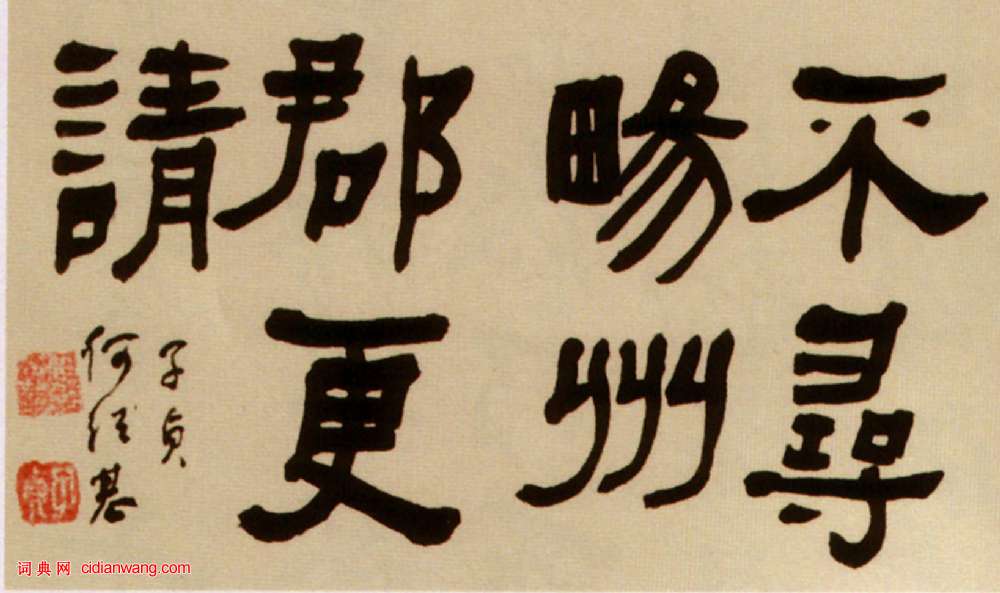 不尋
畼州
郡更
請
子貞
何紹基
词典网 cidianwang.com